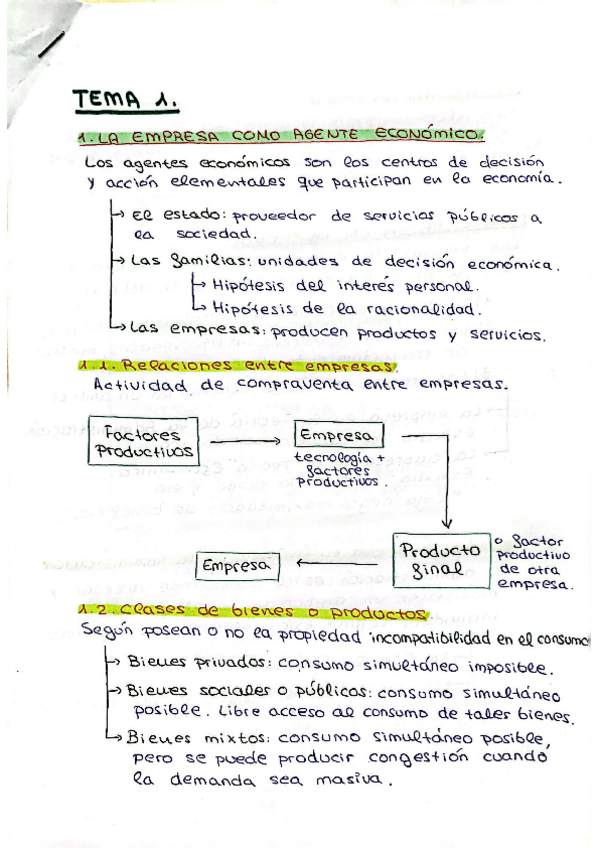 TEMA 1.
1. LA EMPRESA COMO AGENTE ECONÓMICO.
Los agentes económicos son los centros de decisión
y acción elementales que participan en la economía.
El estado: proveedor de servicios públicos a
la sociedad.
Las familias: unidades de decisión económica.
Hipótesis del interés personal.
Hipótesis de la racionalidad.
Las empresas: producen productos y servicios.
1.1. Relaciones entre empresas.
Actividad de compraventa entre empresas.
Factores
Productivos
Empresa
tecnología +
factores
productivos.
Producto
final
o factor
productivo
de otra
empresa.
Empresa
1.2. Clases de bienes o productos.
Según posean o no la propiedad incompatibilidad en el consumo
Bienes privados: consumo simultáneo imposible.
Bienes sociales o públicos: consumo simultáneo
posible. Libre acceso al consumo de tales bienes.
Bienes mixtos: consumo simultáneo posible,
pero se puede producir congestión cuando
la demanda sea masiva.